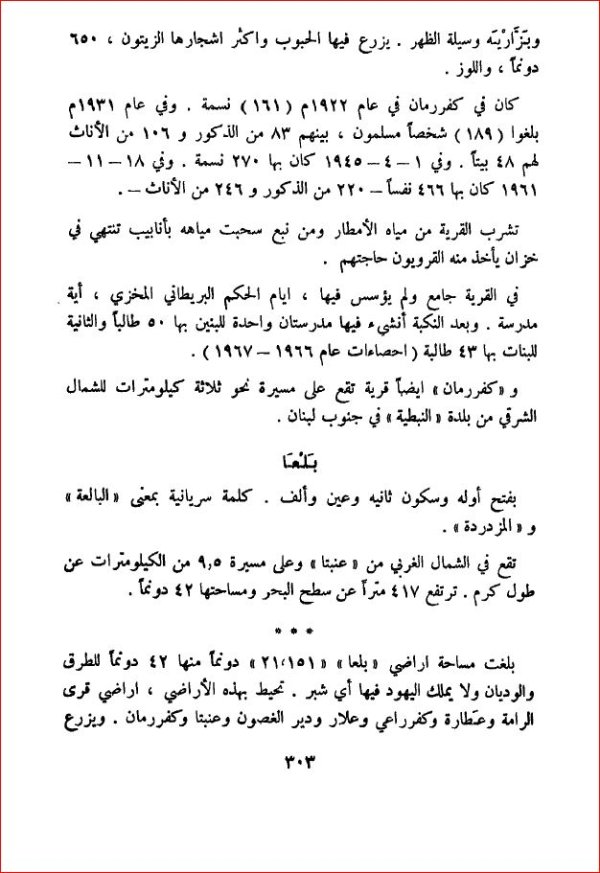 وبَزَّارْيَه وسيلة الظهر . يزرع فيها الحبوب واكثر اشجارها الزيتون ، ٦٥٠
دونماً ، واللوز .
كان في كفررمان في عام ١٩٢٢م (١٦١) نسمة . وفي عام ١٩٣١م
بلغوا (١٨٩) شخصاً مسلمون ، بينهم ٨٣ من الذكور و ١٠٦ من الأناث
لهم ٤٨ بيتاً . وفي ١ – ٤ – ١٩٤٥ كان بها ٢٧٠ نسمة . وفي ١٨ – ١١ –
١٩٦١ كان بها ٤٦٦ نفساً – ٢٢٠ من الذكور و ٢٤٦ من الأناث – .
تشرب القرية من مياه الأمطار ومن نبع سحبت مياهه بأنابيب تنتهي في
خزان يأخذ منه القرويون حاجتهم .
في القرية جامع ولم يؤسس فيها ، ايام الحكم البريطاني المخزي ، أية
مدرسة . وبعد النكبة أنشيء فيها مدرستان واحدة للبنين بها ٥٠ طالباً والثانية
للبنات بها ٤٣ طالبة ( احصاءات عام ١٩٦٦ – ١٩٦٧ ) .
و « كفررمان » ايضاً قرية تقع على مسيرة نحو ثلاثة كيلومترات للشمال
الشرقي من بلدة « النبطية » في جنوب لبنان .
بَلْعَا
بفتح أوله وسكون ثانيه وعين وألف . كلمة سريانية بمعنى « البالعة »
و « المزدردة » .
تقع في الشمال الغربي من « عنبتا » وعلى مسيرة ٩,٥ من الكيلومترات عن
طول كرم . ترتفع ٤١٧ متراً عن سطح البحر ومساحتها ٤٢ دونماً .
* * *
بلغت مساحة اراضي « بلعا » « ٢١،١٥١ » دونماً منها ٤٢ دونماً للطرق
والوديان ولا يملك اليهود فيها أي شبر . تحيط بهذه الأراضي ، اراضي قرى
الرامة وعطارة وكفرراعي وعلار ودير الغصون وعنبتا وكفررمان . ويزرع
٣٠٣